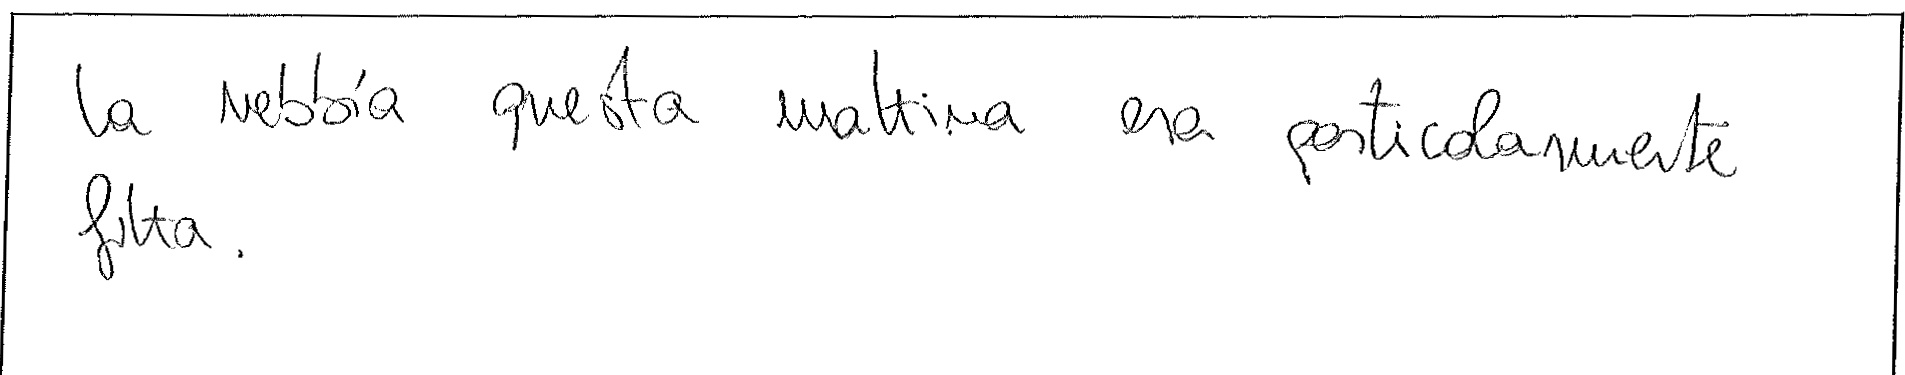 la nebbia questa mattina era particolarmente
fitta.